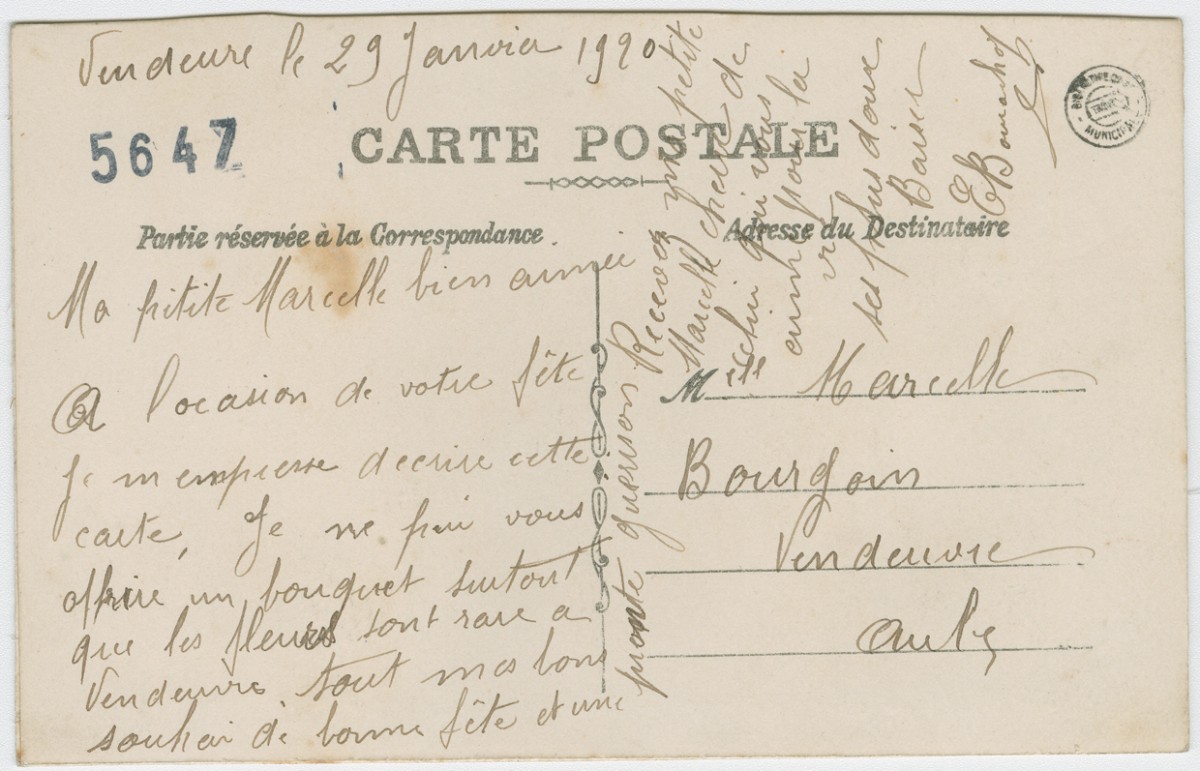 Vendeure le 29 Janvier 1920
5647
CARTE POSTALE
Partie réservée à la Correspondance
Adresse du Destinataire
Ma petite Marcelle bien aimée
A l'ocasion de votre fête
Je m'empresse d'ecrire cette
carte, Je ne puis vous
offrire un bouquet surtout
que les fleurs sont rare a
Vendeuvre tout mes bons
souhai de bonne fête et une
pronte guerison Recevez ma petite
Marcelle cherie de
celui qui vous
aime pour la
vie
ses plus doux
Baiser
E Bournhof
Mlle Marcelle
Bourgoin
Vendeuvre
Aube
MUNICIPALE